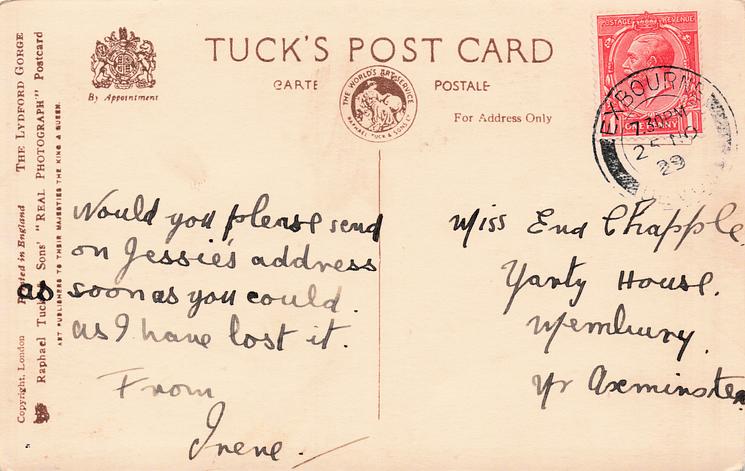 TUCK'S POST CARD
CARTE POSTALE
By Appointment
THE WORLD'S ART SERVICE
RAPHAEL TUCK & SONS LTD
For Address Only
POSTAGE REVENUE
ONE PENNY
EXBOURNE
7.30PM
29
Copyright, London Printed in England THE LYDFORD GORGE
Raphael Tuck Sons' "REAL PHOTOGRAPH" Postcard
ART PUBLISHERS TO THEIR MAJESTIES THE KING & QUEEN.
Would you please send
on Jessie's address
as soon as you could.
as I have lost it.
From
Irene.
Miss End Chapple
Yarty House.
Membury.
Nr Axminster